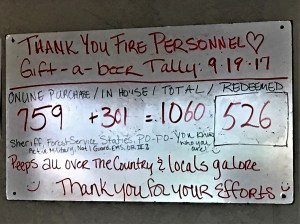 THANK YOU FIRE PERSONNEL ♡
Gift-a-beer Tally: 9.18.17
ONLINE PURCHASE / IN HOUSE / TOTAL / REDEEMED
759 + 301 = 1060 526
Sheriff, Forest Service, States, PO-PO- You know who you are!
Active Military, Nat'l Guard, EMS,
Peeps all over the Country & locals galore
Thank you for your Efforts